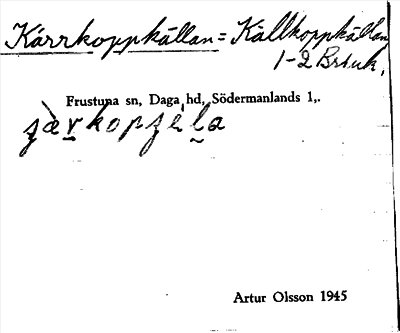 Kärrkoppkällan = Källkoppkällan
1-2 Bruk.
Frustuna sn, Daga hd, Södermanlands l,.
Artur Olsson 1945